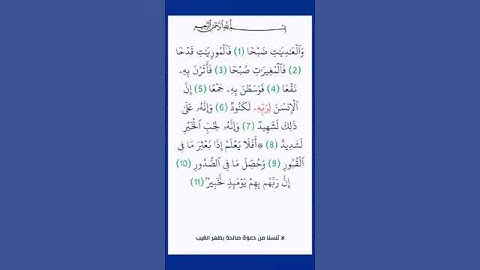 بِسْمِ ٱللَّهِ ٱلرَّحْمَٰنِ ٱلرَّحِيمِ
وَٱلْعَٰدِيَٰتِ ضَبْحًا (1) فَٱلْمُورِيَٰتِ قَدْحًا
(2) فَٱلْمُغِيرَٰتِ صُبْحًا (3) فَأَثَرْنَ بِهِۦ
نَقْعًا (4) فَوَسَطْنَ بِهِۦ جَمْعًا (5) إِنَّ
ٱلْإِنسَٰنَ لِرَبِّهِۦ لَكَنُودٌ (6) وَإِنَّهُۥ عَلَىٰ
ذَٰلِكَ لَشَهِيدٌ (7) وَإِنَّهُۥ لِحُبِّ ٱلْخَيْرِ
لَشَدِيدٌ (8) ۞ أَفَلَا يَعْلَمُ إِذَا بُعْثِرَ مَا فِى
ٱلْقُبُورِ (9) وَحُصِّلَ مَا فِى ٱلصُّدُورِ (10)
إِنَّ رَبَّهُم بِهِمْ يَوْمَئِذٍ لَّخَبِيرٌۢ (11)
لا تنسنا من دعوة صالحة بظهر الغيب